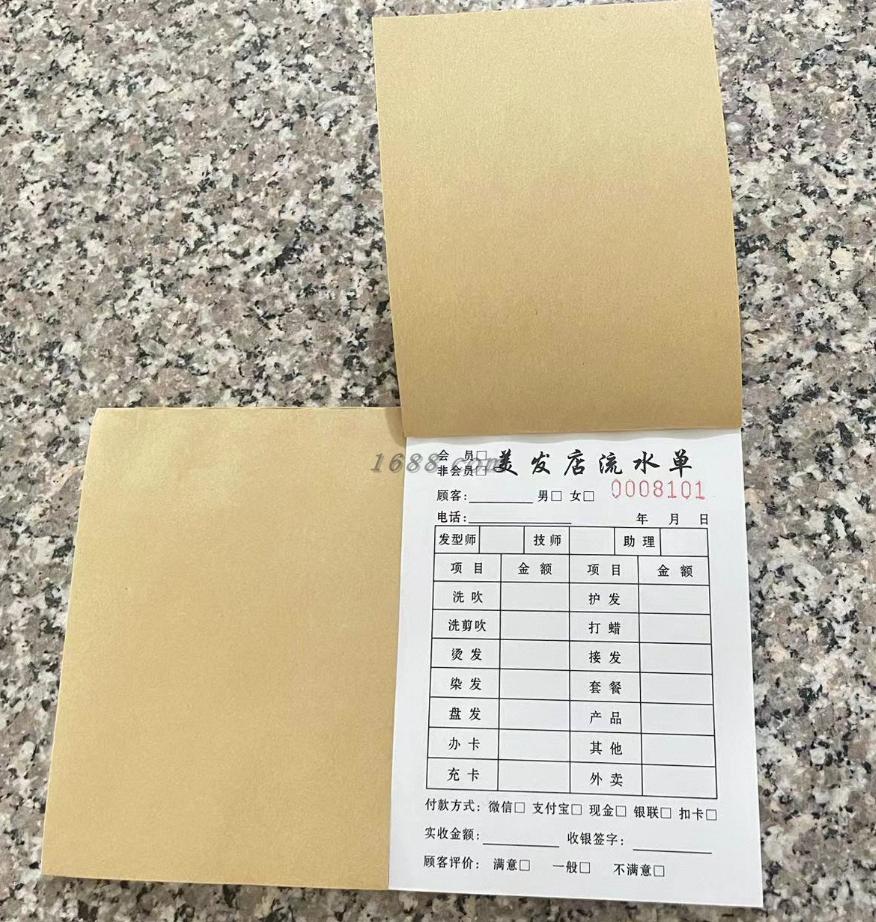 会 员□
非会员□
美发店流水单
1688.com
顾客:________ 男□ 女□ 0008101
电话:____________ 年 月 日
发型师 技师 助理
项目 金额 项目 金额
洗吹 护发
洗剪吹 打蜡
烫发 接发
染发 套餐
盘发 产品
办卡 其他
充卡 外卖
付款方式: 微信□ 支付宝□ 现金□ 银联□ 扣卡□
实收金额:________ 收银签字:________
顾客评价: 满意□ 一般□ 不满意□